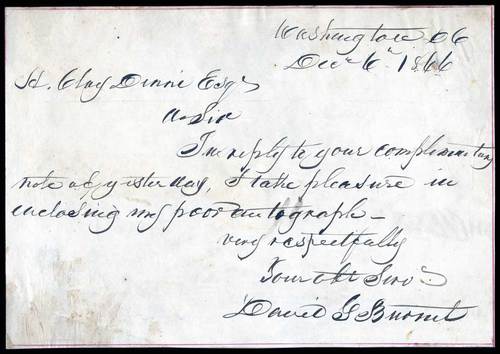 Washington DC
Dec 6th 1866
H. Clay Esqr
Sir
In reply to your complimentary
note of yesterday, I take pleasure in
enclosing my poor autograph —
very respectfully
Your obt Servt
David G Burnet